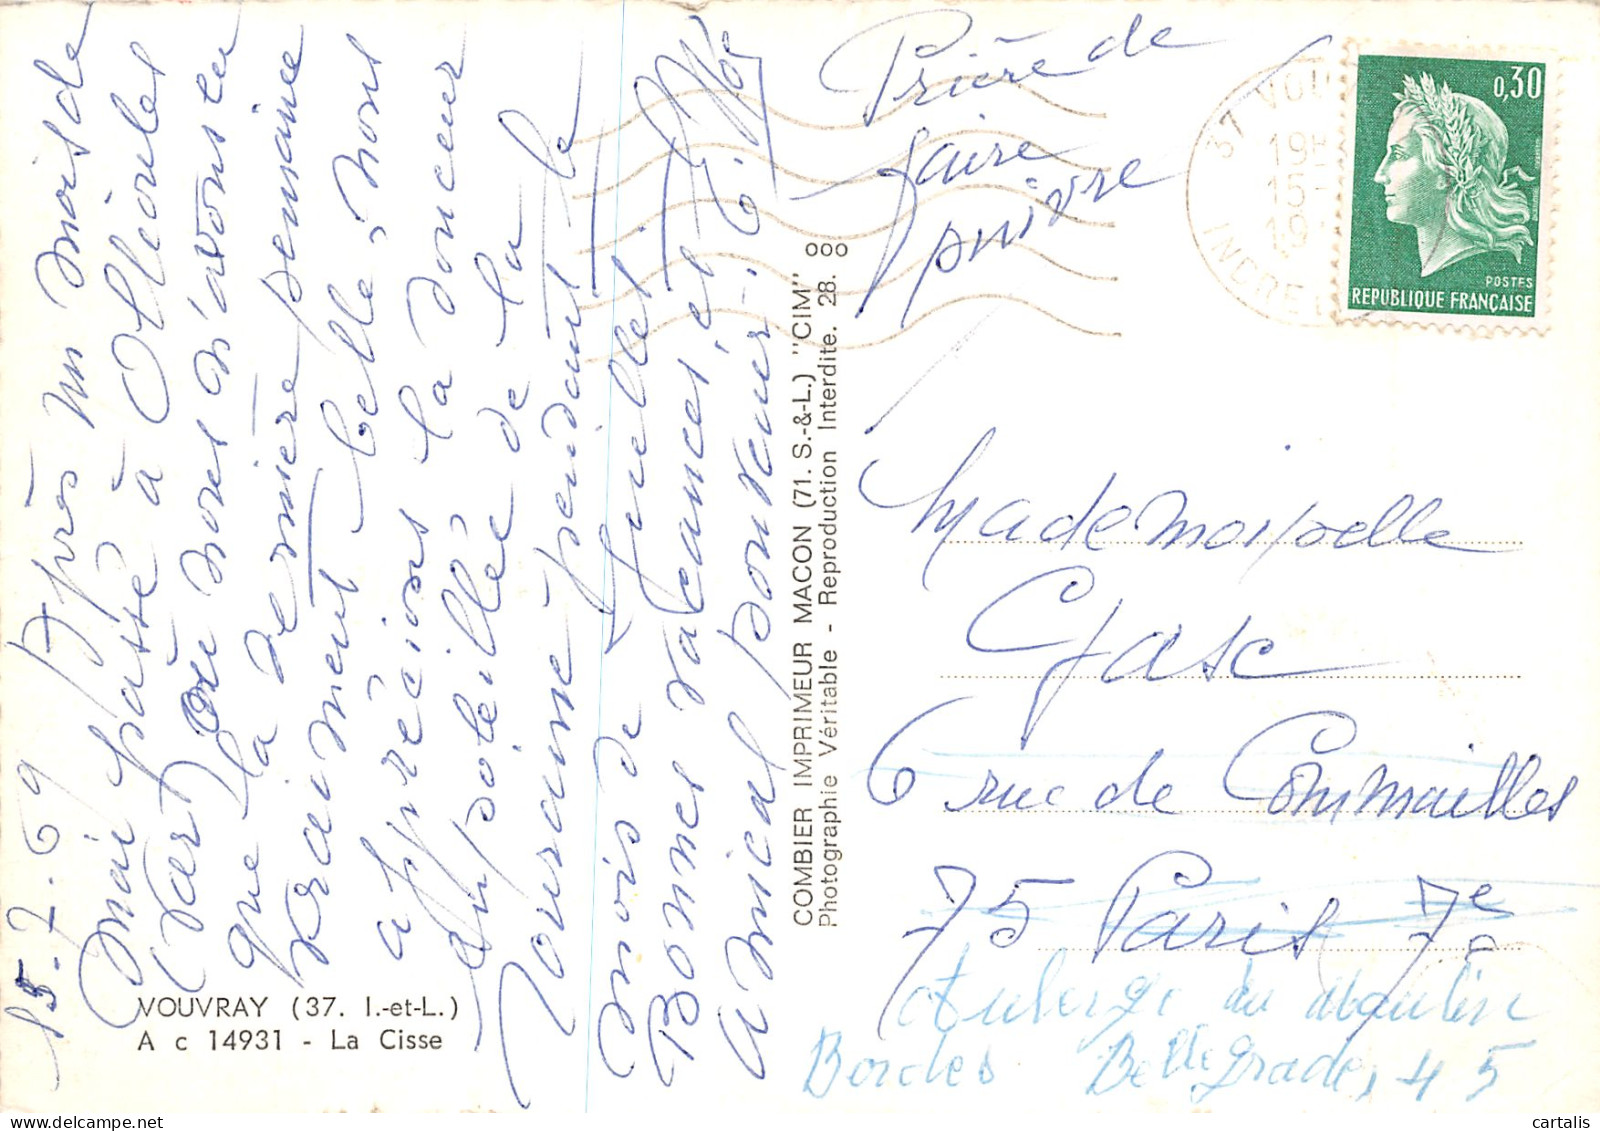 15.7.69
Après un mois de
mai passé à Ollioules
(Var) où nous n'avons eu
que la dernière semaine
vraiment belle, nous
apprécions la douceur
ensoleillée de la
Touraine pendant le
mois de Juillet
Bonnes vacances, et
amical souvenir.
VOUVRAY (37. I.-et-L.)
A c 14931 - La Cisse
COMBIER IMPRIMEUR MACON (71. S.-&-L.) "CIM"
Photographie Véritable - Reproduction Interdite. 28.
ooo
Prière de
faire
suivre
37 VOU
15
INDRE
0,30
POSTES
REPUBLIQUE FRANÇAISE
Mademoiselle
Gasc
6 rue de Commailles
75 Paris 7e
Auberge du Moulin
Bordes Bellegrade, 45
cartalis